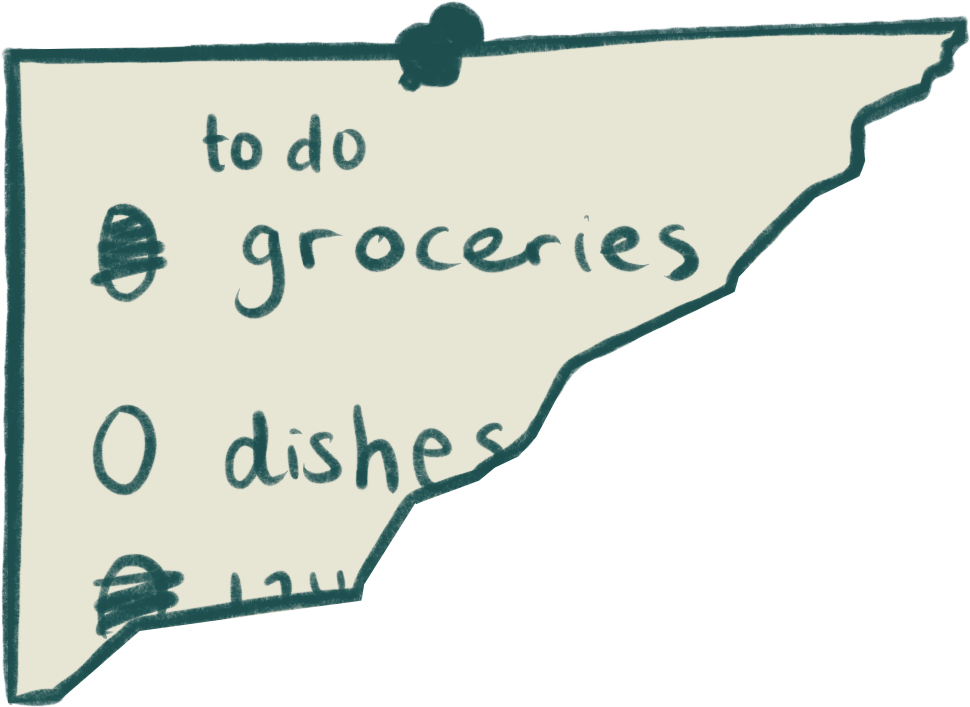 to do
groceries
dishes